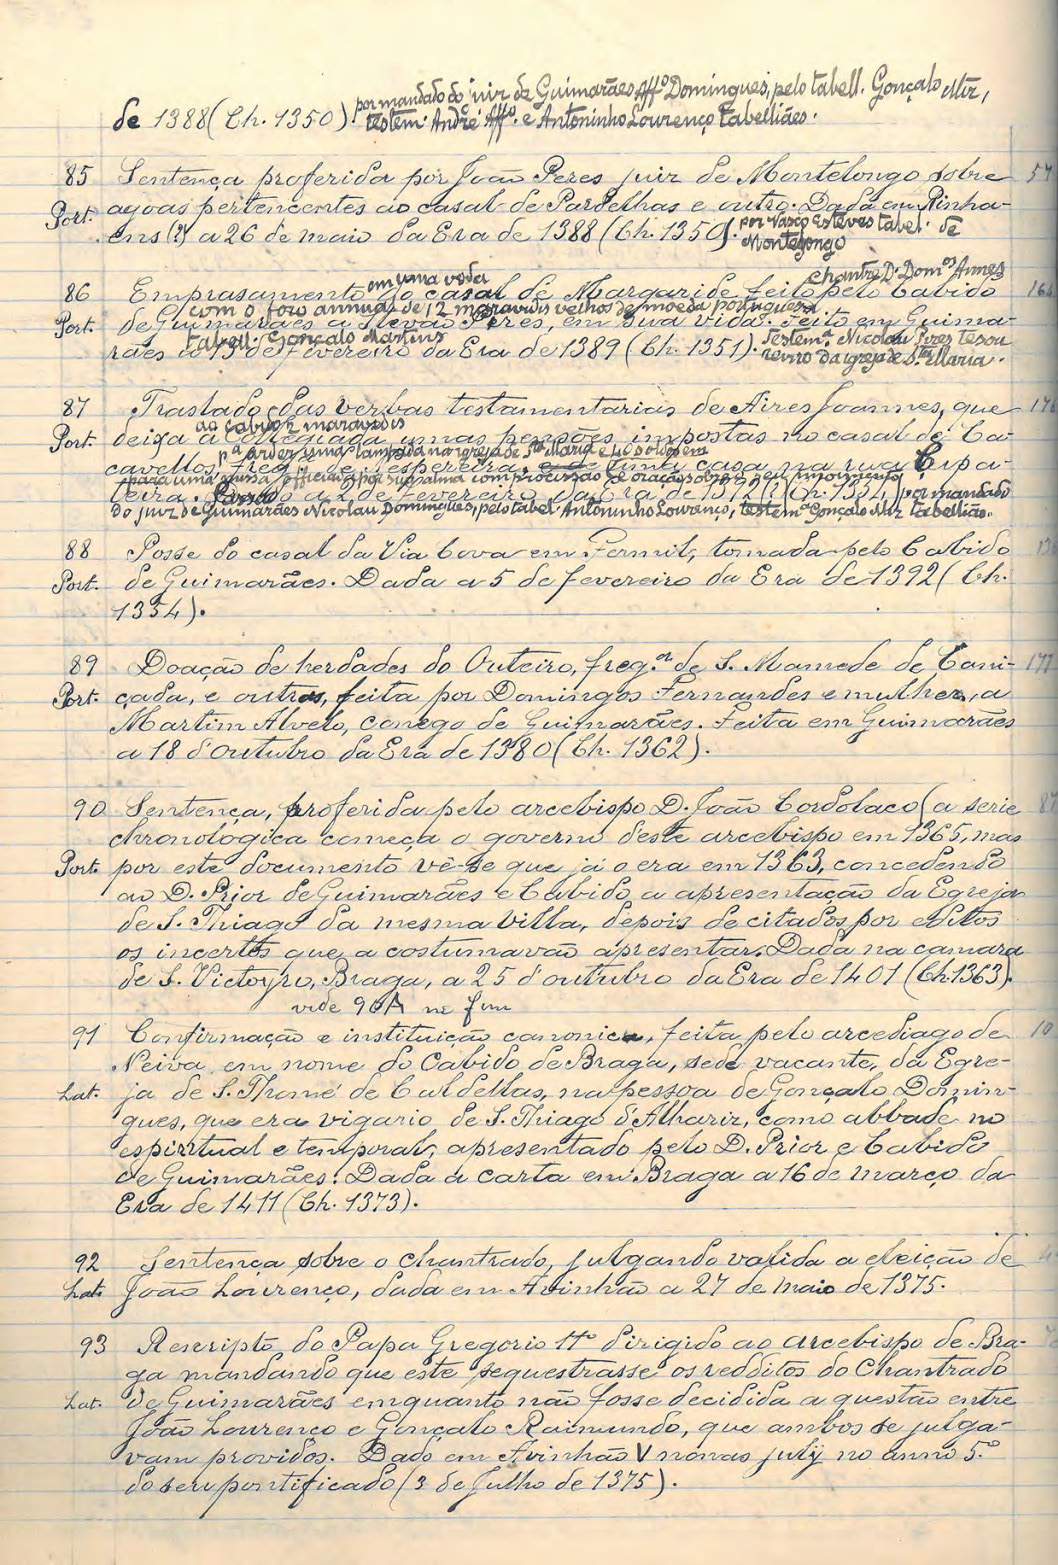 por mandado do juiz de Guimarães Affº Domingues, pelo tabell. Gonçalo Mtz,
de 1388 (Ch. 1350) testem. André Affº. e Antoninho Lourenço tabelliães.
85 Sentença proferida por João Peres juiz de Montelongo sobre 57
Port. agoas pertencentes ao casal de Pardelhas e outro. Dada em Rinha-
ens (?) a 26 de maio da Era de 1388 (Ch. 1350). por Vasco Esteves tabel. de
Montelongo
em uma vida chantre D. Domºˢ Annes
86 Emprasamento do casal de Margaride feito pelo Cabido
com o foro annual de 12 maravidis velhos de moeda portugueza.
Port. de Guimarães a Stevão Pires, em sua vida. Feito em Guima-
tabell. Gonçalo Martins
rães a 13 de fevereiro da Era de 1389 (Ch. 1351). Testemª. Nicolau Pires tesou
reiro da igreja de S.ta Maria.
87 Traslado das verbas testamentarias de Aires Joannes, que
ao cabido 2 maravidis
Port. deixa á Collegiada umas pensões impostas no casal de Ca-
pª arder uma lampada na igreja de Sta Maria e 40 soldos em
cavellos, freg. de Tespereira, e de uma casa na rua Çapa-
para uma missa officiada por sua alma com procissão e oração sobre o seu moimento
teira. Passado a 2 de fevereiro da Era de 1392 (?) (Ch. 1354) por mandado
do juiz de Guimarães Nicolau Domingues, pelo tabel. Antoninho Lourenço, testemª Gonçalo Mtz tabellião.
88 Posse do casal da Via Cova em Fermil, tomada pelo Cabido
Port. de Guimarães. Dada a 5 de fevereiro da Era de 1392 (Ch.
1354).
89 Doação de herdades do Outeiro, freg.ª de S. Mamede de Cani- 177
Port. çada, e outras, feita por Domingos Fernandes e mulher, a
Martim Alvelo, conego de Guimarães. Feita em Guimarães
a 18 d'outubro da Era de 1380 (Ch. 1362).
90 Sentença, proferida pelo arcebispo D. João Cordolaco (a serie
chronologica começa o governo d'este arcebispo em 1365, mas
Port. por este documento vê-se que já o era em 1363, concedendo
ao D. Prior de Guimarães e Cabido a apresentação da Egreja
de S. Thiago da mesma villa, depois de citados por editos
os incertos que a costumavão apresentar. Dada na camara
de S. Victoyro, Braga, a 25 d'outubro da Era de 1401 (Ch. 1363).
vide 90A no fim
91 Confirmação e instituição canonica, feita pelo arcediago de 10
Neiva em nome do Cabido de Braga, sede vacante, da Egre-
Lat. ja de S. Thomé de Caldellas, na pessoa de Gonçalo Domin-
gues, que era vigario de S. Thiago d'Alhariz, como abbade no
espiritual e temporal, apresentado pelo D. Prior e Cabido
de Guimarães. Dada a carta em Braga a 16 de março da
Era de 1411 (Ch. 1373).
92 Sentença sobre o chantrado, julgando valida a eleição de
Lat. João Lourenço, dada em Avinhão a 27 de maio de 1375.
93 Rescripto do Papa Gregorio 11º dirigido ao arcebispo de Bra-
ga mandando que este sequestrasse os redditos do Chantrado
Lat. de Guimarães emquanto não fosse decidida a questão entre
João Lourenço e Gonçalo Raimundo, que ambos se julga-
vam providos. Dado em Avinhão V nonas julij no anno 5.º
do seu pontificado (3 de Julho de 1375).